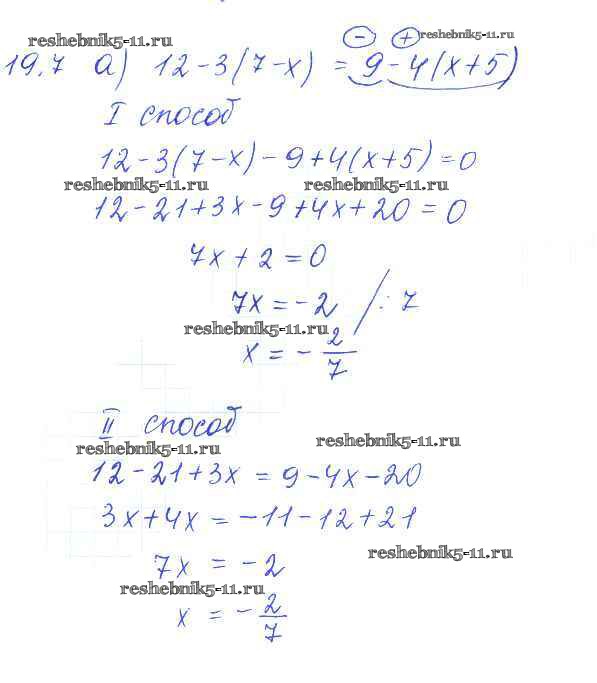 reshebnik5-11.ru
⊖ ⊕ reshebnik5-11.ru
19.7 а) 12-3(7-x) = 9-4(x+5)
I способ
12-3(7-x)-9+4(x+5)=0
reshebnik5-11.ru reshebnik5-11.ru
12-21+3x-9+4x+20=0
7x+2=0
7x=-2 /:7
reshebnik5-11.ru
x=-2/7
II способ
reshebnik5-11.ru reshebnik5-11.ru
12-21+3x=9-4x-20
3x+4x=-11-12+21
reshebnik5-11.ru
7x=-2
reshebnik5-11.ru
x=-2/7